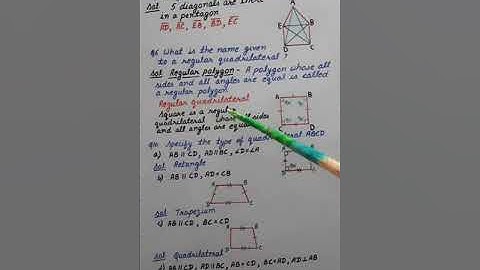 Sol 5 diagonals are there
in a pentagon
AD, AC, EB, BD, EC
A
E B
D C
Q6 What is the name given
to a regular quadrilateral?
Sol Regular polygon - A polygon whose all
sides and all angles are equal is called
a regular polygon
Regular quadrilateral
Square is a regul
quadrilateral whose sides
and all angles are equal
A B
D C
Specify the type of quad eral ABCD
a) AB || CD, AD || BC, ∠D = ∠A
Sol Retangle
b) AB || CD, AD = CB
A B
D C
Sol Trapezium
c) AB || CD, BC = CD
A B
D C
Sol Quadrilateral
d) AB || CD, AD || BC, AB = CD, BC = AD, AD ⊥ AB